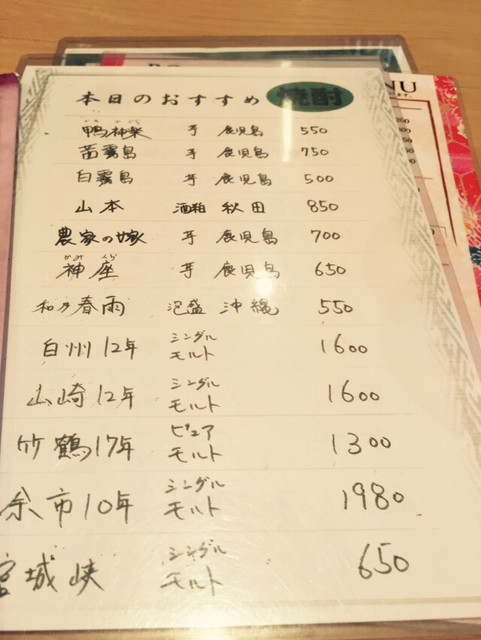 本日のおすすめ 焼酎
鴨神楽 芋 鹿児島 550
茜霧島 芋 鹿児島 750
白霧島 芋 鹿児島 500
山本 酒粕 秋田 850
農家の嫁 芋 鹿児島 700
かみくら
神座 芋 鹿児島 650
春雨 泡盛 沖縄 550
白州12年 シングルモルト 1600
山崎12年 シングルモルト 1600
竹鶴17年 ピュアモルト 1300
余市10年 シングルモルト 1980
宮城峡 シングルモルト 650
NU